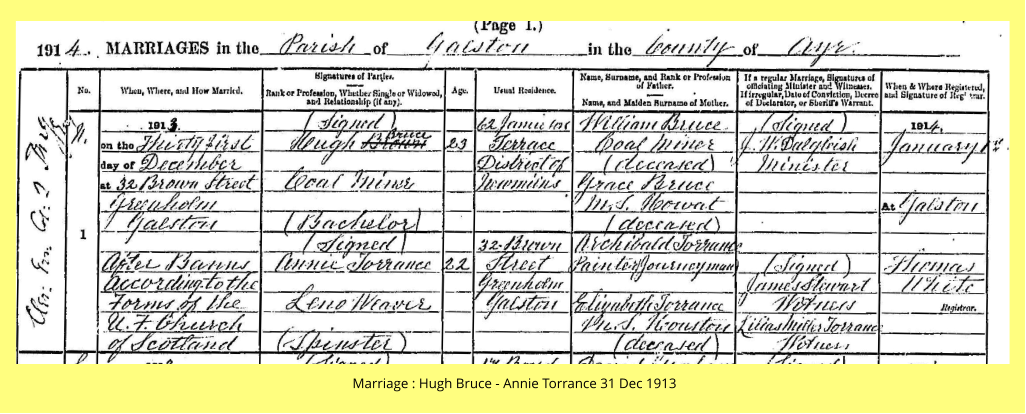 (Page 1.)
1914. MARRIAGES in the Parish of Galston in the County of Ayr
No.
When, Where, and How Married.
Signatures of Parties.
Rank or Profession, Whether Single or Widowed, and Relationship (if any).
Age.
Usual Residence.
Name, Surname, and Rank or Profession of Father.
Name, and Maiden Surname of Mother.
If a regular Marriage, Signatures of officiating Minister and Witnesses.
If irregular, Date of Conviction, Decree of Declarator, or Sheriff's Warrant.
When & Where Registered, and Signature of Registrar.
1
1913.
on the Thirty first
day of December
at 32 Brown Street
Greenholm
Galston
After Banns
According to the
Forms of the
U. F. Church
of Scotland
(Signed)
Hugh Brown Bruce
Coal Miner
(Bachelor)
(Signed)
Annie Torrance
Leno Weaver
(Spinster)
23
22
62 Jamieson
Terrace
District of
Newmilns
32 Brown
Street
Greenholm
Galston
William Bruce
Coal Miner
(deceased)
Grace Bruce
M.S. Howat
(deceased)
Archibald Torrance
Painter (Journeyman)
Elizabeth Torrance
M.S. Houston
(deceased)
(Signed)
J. W. Dalgleish
Minister
(Signed)
James Stewart
Witness
Lilias Miller Torrance
Witness
1914.
January 1st
At Galston
Thomas
White
Registrar.
(Signed)
(Signed)
Marriage : Hugh Bruce - Annie Torrance 31 Dec 1913